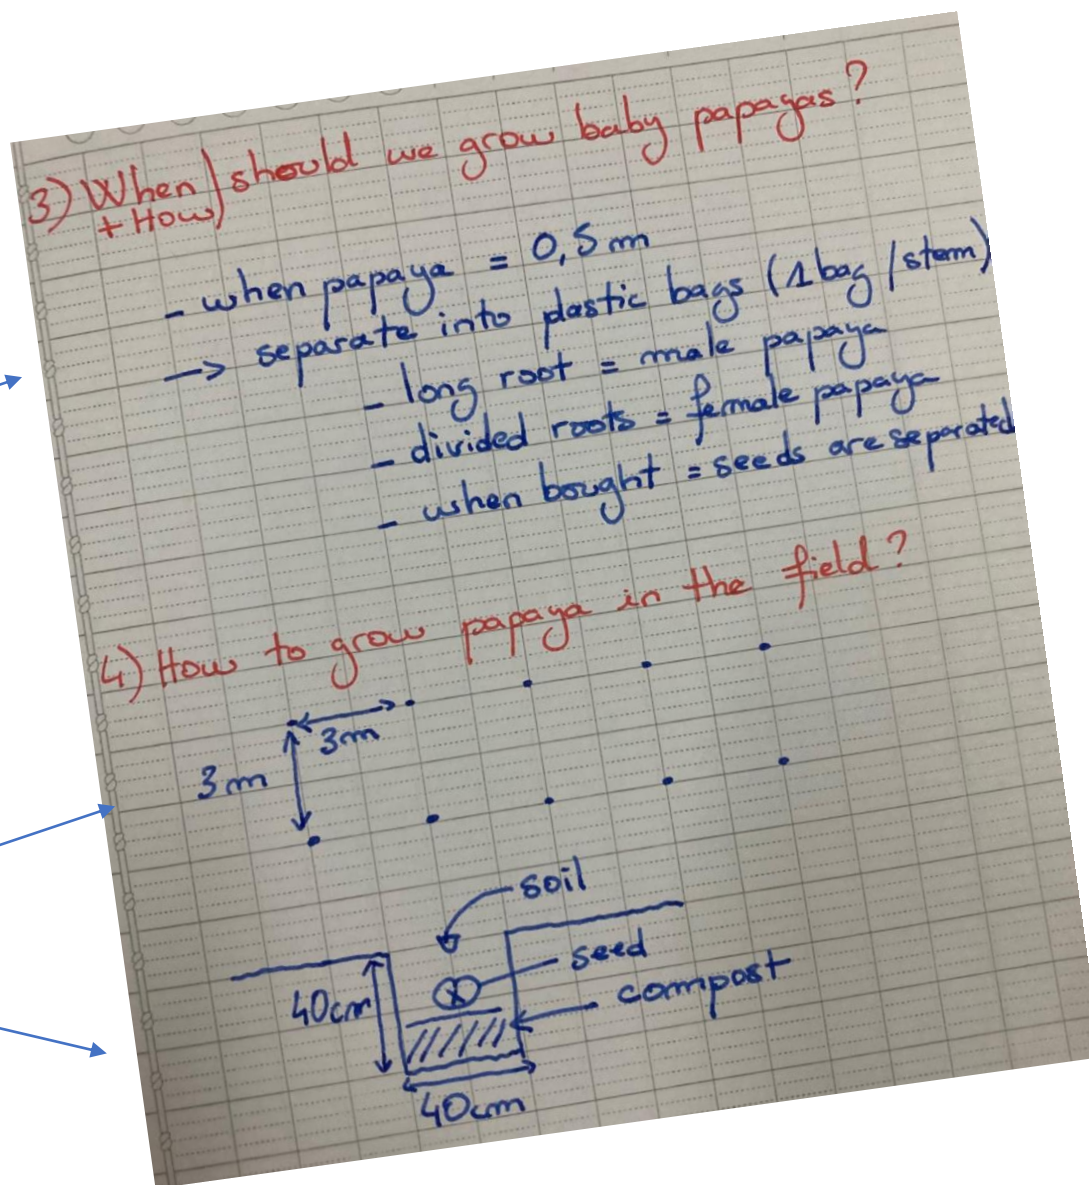 3) When + How) should we grow baby papayas?
- when papaya = 0,5m
-> separate into plastic bags (1 bag / stem)
- long root = male papaya
- divided roots = female papaya
- when bought = seeds are separated
4) How to grow papaya in the field?
3m
3m
soil
seed
40cm
compost
40cm